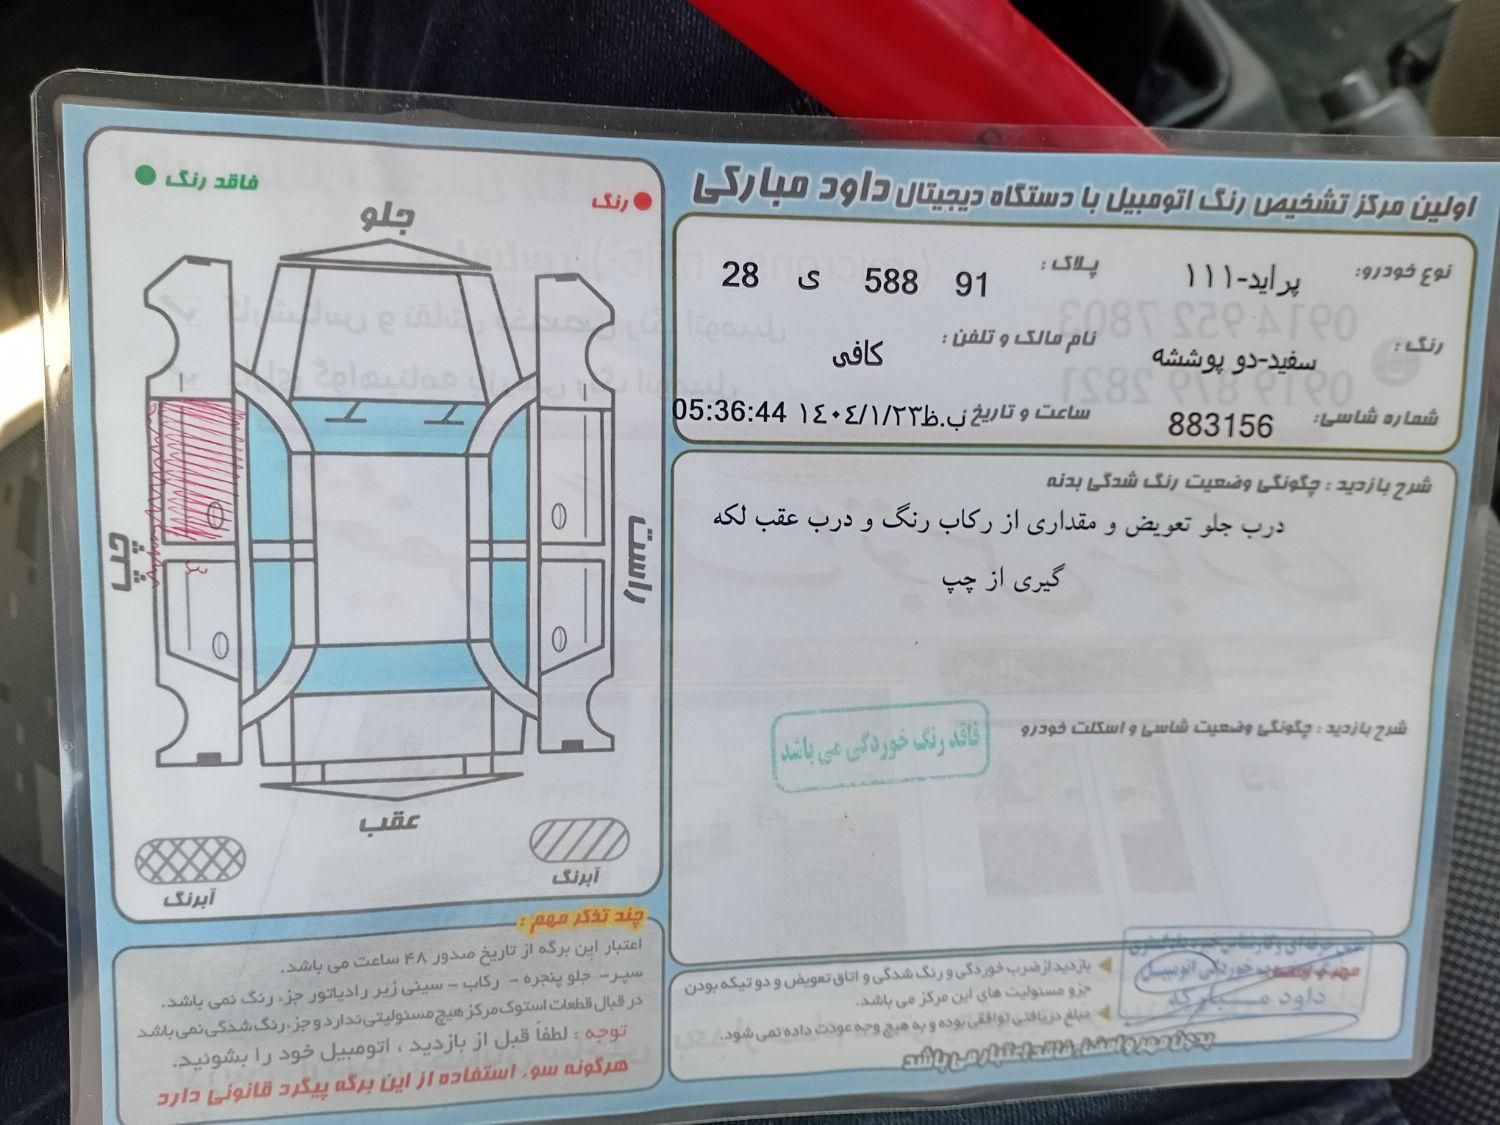 اولین مرکز تشخیص رنگ اتومبیل با دستگاه دیجیتال داود مبارکی
نوع خودرو: پراید-۱۱۱ پلاک: 91 588 ی 28
رنگ: سفید-دو پوششه نام مالک و تلفن: کافی
شماره شاسی: 883156 ساعت و تاریخ ب.ظ ۱٤۰٤/۱/۲۳ 05:36:44
شرح بازدید : چگونگی وضعیت رنگ شدگی بدنه
درب جلو تعویض و مقداری از رکاب رنگ و درب عقب لکه
گیری از چپ
شرح بازدید : چگونگی وضعیت شاسی و اسکلت خودرو
فاقد رنگ خوردگی می باشد
بازدید از ضرب خوردگی و رنگ شدگی و اتاق تعویض و دو تیکه بودن
جزو مسئولیت های این مرکز می باشد.
مبلغ دریافتی توافقی بوده و به هیچ وجه عودت داده نمی شود.
بدون مهر و امضاء فاقد اعتبار می باشد
داود مبارکه
رنگ
فاقد رنگ
جلو
راست
چپ
عقب
آبرنگ
آبرنگ
چند تذکر مهم :
اعتبار این برگه از تاریخ صدور ۴۸ ساعت می باشد.
سپر - جلو پنجره - رکاب - سینی زیر رادیاتور جزء رنگ نمی باشد.
در قبال قطعات استوک مرکز هیچ مسئولیتی ندارد و جزء رنگ شدگی نمی باشد
توجه : لطفاً قبل از بازدید ، اتومبیل خود را بشوئید.
هرگونه سوء استفاده از این برگه پیگرد قانونی دارد